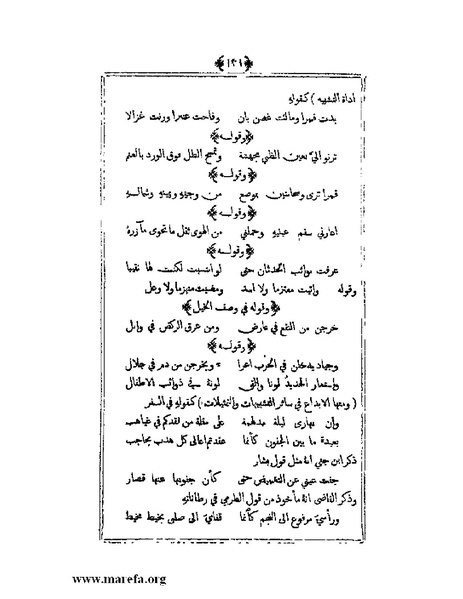 اداة التشبيه) كقوله
بدت قمرا ومالت غصن بان وفاحت عنبرا ورنت غزالا
﴿وقوله﴾
ترنو اليّ بعين الظبي مجهشة وتمسح الطل فوق الورد بالعنم
﴿وقوله﴾
قمرا ترى وسحابتين بموضع من وجهه ويمينه وشماله
﴿وقوله﴾
اعارني سقم عينيه وحملني من الهوى ثقل ما تحوى مآزره
﴿وقوله﴾
عرفت نوائب الحدثان حتى لو انتسبت لكنت لها نقيبا
وقوله وأتيت معتزما ولا اسد ومضيت منهزما ولا وعل
﴿وقوله في وصف الخيل﴾
خرجن من النقع في عارض ومن عرق الركض في وابل
﴿وقوله﴾
وجياد يدخلن في الحرب اعرا ء ويخرجن من دم في جلال
واستعار الحديد لونا والقى لونه في ذوائب الاطفال
(ومنها الابداع في سائر التشبيهات والتمثيلات) كقوله في السفر
وان نهاري ليلة مدلهمة على مقلة من فقدكم في غياهب
بعيدة ما بين الجفون كأنما عقدتم اعالي كل هدب بحاجب
ذكر ابن جني انه مثل قول بشار
جفت عيني عن التغميض حتى كأن جفونها عنها قصار
وذكر القاضي انه مأخوذ من قول الطرمي في رطاناته
ورأسي مرفوع الى النجم كأنما قفاي الى صلبي بخيط مخيط
www.marefa.org